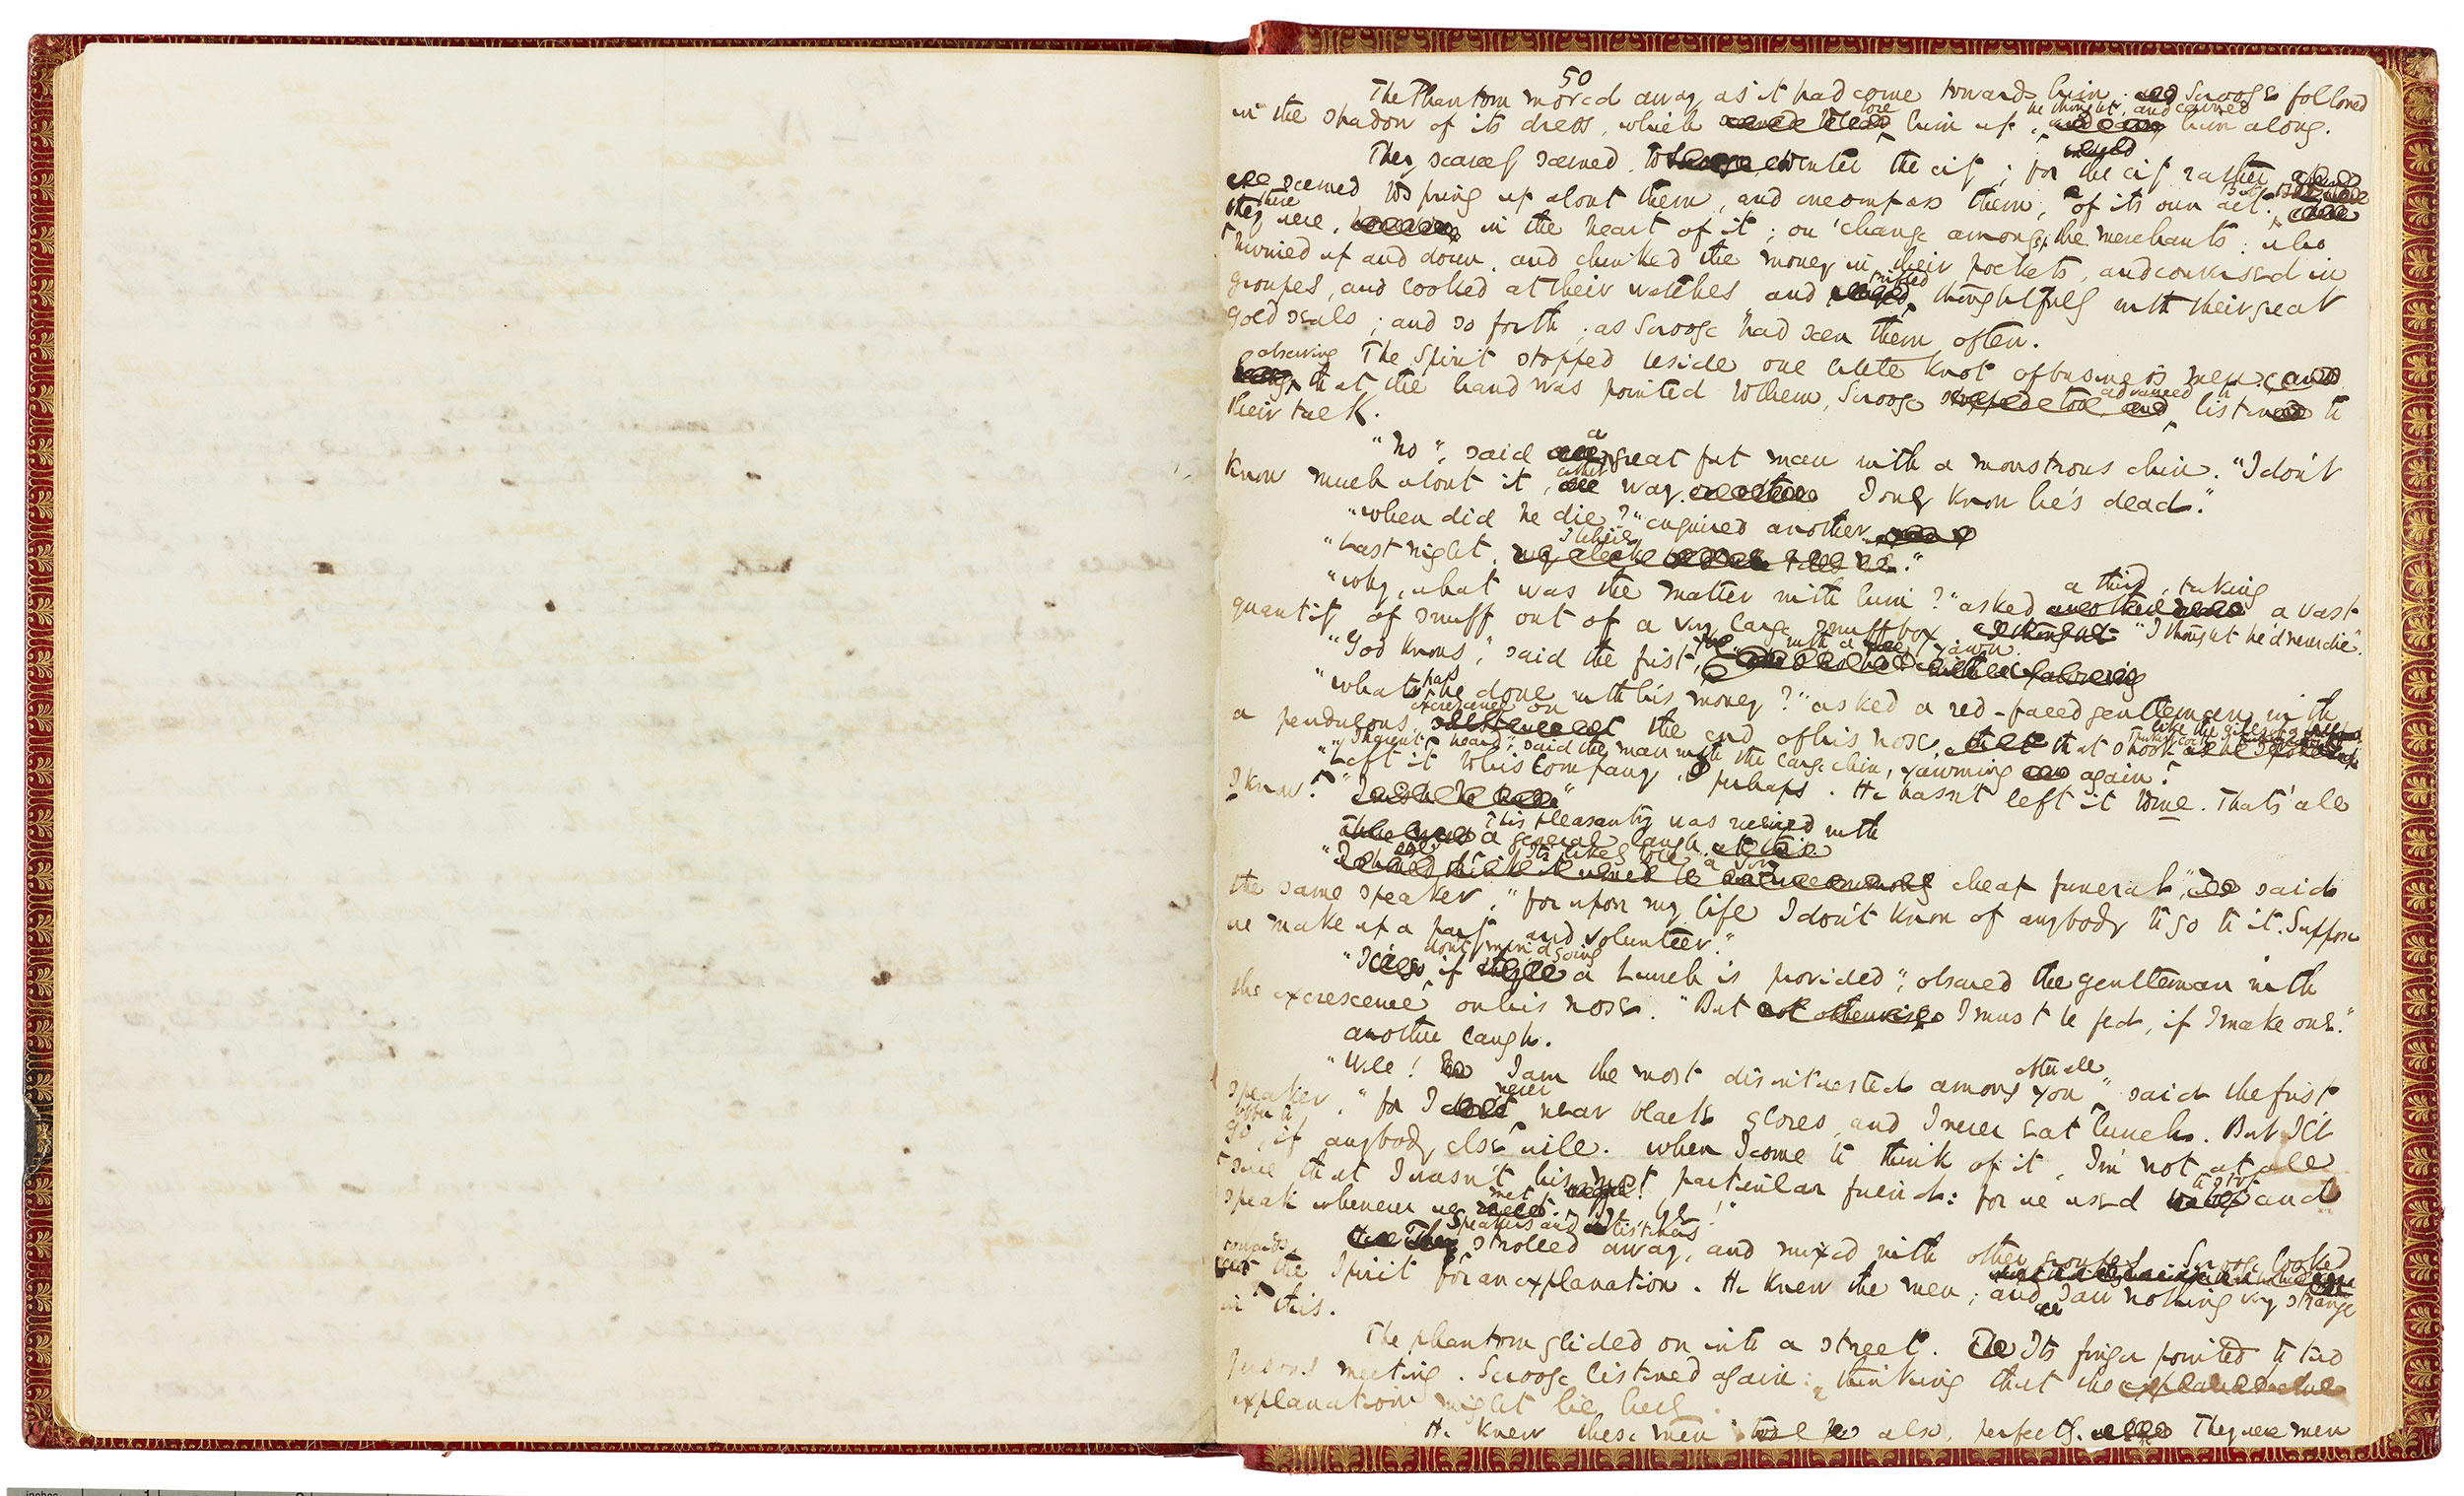 50
The Phantom moved away as it had come towards him. Scrooge followed
in the shadow of its dress, which bore him up, he thought, and carried him along.
They scarcely seemed to enter the city; for the city rather
seemed to spring up about them, and encompass them, of its own act. But there
they were, in the heart of it; on 'change among the merchants: who
hurried up and down, and chinked the money in their pockets, and conversed in
groupes, and looked at their watches and trifled thoughtfully with their great
gold seals; and so forth; as Scrooge had seen them often.
The Spirit stopped beside one little knot of business men.
observing that the hand was pointed to them, Scrooge advanced to listen to
their talk.
"No", said a great fat man with a monstrous chin. "I don't
know much about it, either way. I only know he's dead."
"When did he die?" enquired another.
"Last night, I believe."
"Why, what was the matter with him?" asked a third, taking a vast
quantity of snuff out of a very large snuff box. "I thought he'd never die".
"God knows", said the first, with a yawn.
"What has he done with his money?" asked a red-faced gentleman with
a pendulous excrescence on the end of his nose, that shook like the gills of a
"I haven't heard", said the man with the large chin, yawning again.
"Left it to his Company, perhaps. He hasn't left it to me. That's all
I know."
This pleasantry was received with
a general laugh.
"It's likely to be a very cheap funeral", said
the same speaker, "for upon my life I don't know of anybody to go to it. Suppose
we make up a party and volunteer."
"I don't mind going if a lunch is provided", observed the gentleman with
the excrescence on his nose. "But I must be fed, if I make one."
Another laugh.
"Well! I am the most disinterested among you after all", said the first
speaker, "for I never wear black gloves, and I never eat lunch. But I'll
offer to go, if anybody else will. When I come to think of it, I'm not at all
sure that I wasn't his most particular friend: for we used to stop and
speak whenever we met. Bye bye!"
Speakers and listeners strolled away, and mixed with other groupes. Scrooge looked
towards the Spirit for an explanation. He knew the men; and saw nothing very strange
in this.
The phantom glided on into a street. Its finger pointed to two
persons meeting. Scrooge listened again: thinking that the
explanation might lie here.
He knew these men also, perfectly. They were men
inches 1